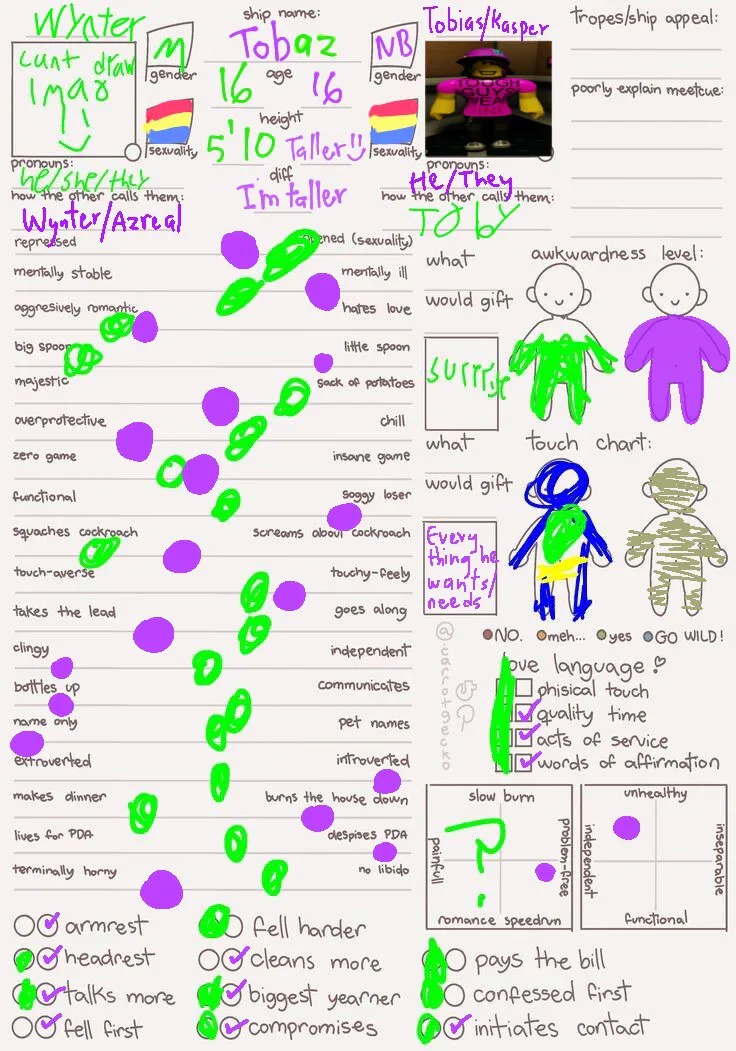 Wynter
ship name:
Tobias/Kasper
tropes/ship appeal:
cunt draw
lmao
:)
M
gender
Tobaz
NB
gender
TOUGH
GUYS
WEAR
PINK
16
age
16
poorly explain meetcue:
height
5'10
Taller :)
sexuality
sexuality
pronouns:
he/she/they
diff
I'm taller
pronouns:
He/They
how the other calls them:
Wynter/Azreal
how the other calls them:
Toby
repressed
opened (sexuality)
mentally stable
mentally ill
aggresively romantic
hates love
big spoon
little spoon
majestic
sack of potatoes
overprotective
chill
zero game
insane game
functional
soggy loser
squaches cockroach
screams about cockroach
touch-averse
touchy-feely
takes the lead
goes along
clingy
independent
bottles up
communicates
name only
pet names
extroverted
introverted
makes dinner
burns the house down
lives for PDA
despises PDA
terminally horny
no libido
what
would gift
surprise
awkwardness level:
what
would gift
Every
thing he
wants/
needs
touch chart:
NO.
meh...
yes
GO WILD!
@carrotgecko
love language:
phisical touch
quality time
acts of service
words of affirmation
slow burn
painfull
problem-free
romance speedrun
?
unhealthy
independent
inseparable
functional
armrest
headrest
talks more
fell first
fell harder
cleans more
biggest yearner
compromises
pays the bill
confessed first
initiates contact